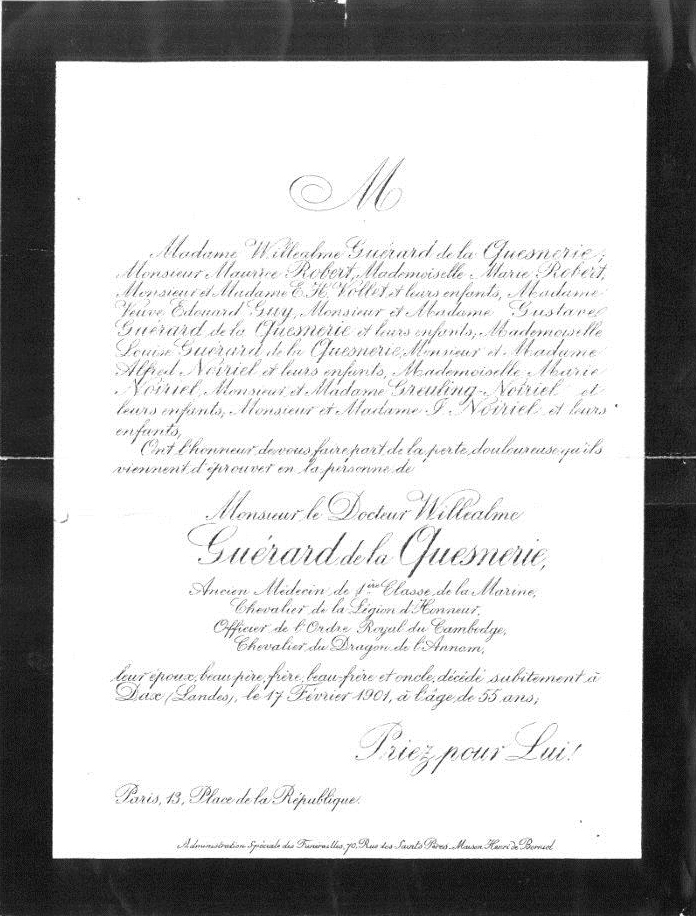 M
Madame Willealme Guérard de la Quesnerie,
Monsieur Maurice Robert, Mademoiselle Marie Robert,
Monsieur et Madame E. H. Vollet et leurs enfants, Madame
Veuve Edouard Guy, Monsieur et Madame Gustave
Guérard de la Quesnerie et leurs enfants, Mademoiselle
Louise Guérard de la Quesnerie, Monsieur et Madame
Alfred Noiriel et leurs enfants, Mademoiselle Marie
Noiriel, Monsieur et Madame Greuling-Noiriel et
leurs enfants, Monsieur et Madame J. Noiriel et leurs
enfants,
Ont l'honneur de vous faire part de la perte douloureuse qu'ils
viennent d'éprouver en la personne de
Monsieur le Docteur Willealme
Guérard de la Quesnerie,
Ancien Médecin de 1ère Classe de la Marine,
Chevalier de la Légion d'Honneur,
Officier de l'Ordre Royal du Cambodge,
Chevalier du Dragon de l'Annam,
leur époux, beau-père, frère, beau-frère et oncle, décédé subitement à
Dax (Landes), le 17 Février 1901, à l'âge de 55 ans;
Priez pour Lui!
Paris, 13, Place de la République.
Administration Spéciale des Funérailles, 70, Rue des Saints Pères, Maison Henri de Borniol